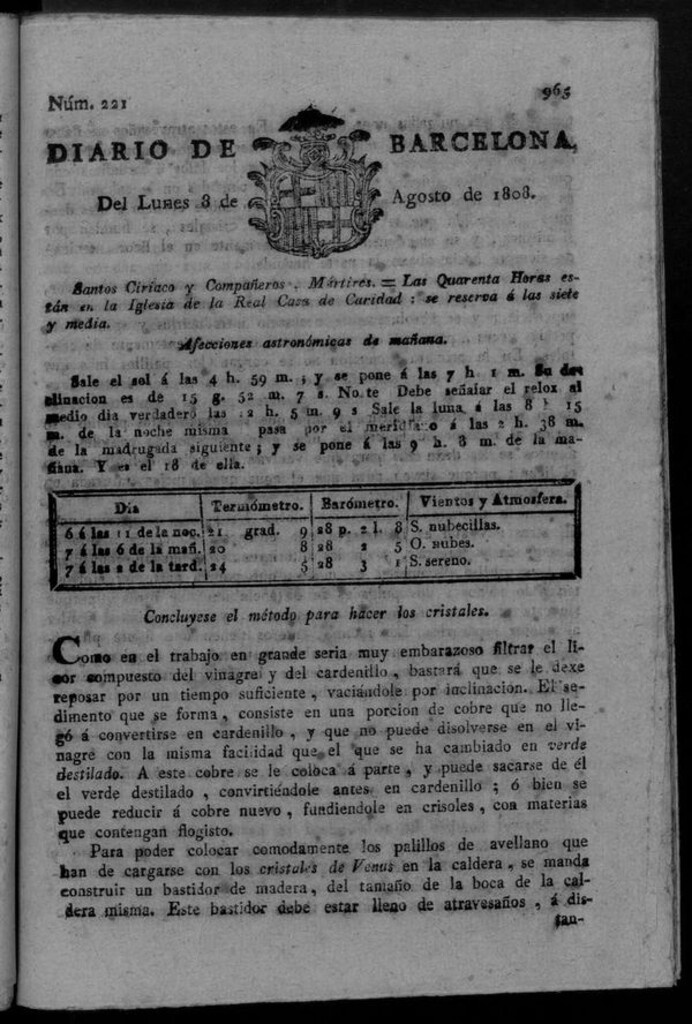 Núm. 221
965
DIARIO DE BARCELONA,
Del Lunes 8 de Agosto de 1808.
Santos Ciríaco y Compañeros, Mártires. = Las Quarenta Horas es-
tán en la Iglesia de la Real Casa de Caridad : se reserva á las siete
y media.
Afecciones astronómicas de mañana.
Sale el sol á las 4 h. 59 m. ; y se pone á las 7 h 1 m. Su de
clinacion es de 15 g. 52 m. 7 s. Note Debe señalar el relox al
medio dia verdadero las 12 h. 5 m. 9 s Sale la luna á las 8 h 15
m. de la noche misma pasa por el meridiano á las 2 h. 38 m.
de la madrugada siguiente ; y se pone á las 9 h. 8 m. de la ma-
ñana. Y es el 18 de ella.
Dia Termómetro. Barómetro. Vientos y Atmosfera.
6 á las 11 de la noc. 21 grad. 9 28 p. 2 l. 8 S. nubecillas.
7 á las 6 de la mañ. 20 8 28 2 5 O. nubes.
7 á las 2 de la tard. 24 5 28 3 1 S. sereno.
Concluyese el método para hacer los cristales.
Como en el trabajo en grande seria muy embarazoso filtrar el li-
cor compuesto del vinagre y del cardenillo, bastará que se le dexe
reposar por un tiempo suficiente, vaciándole por inclinación. El se-
dimento que se forma, consiste en una porcion de cobre que no lle-
gó á convertirse en cardenillo, y que no puede disolverse en el vi-
nagre con la misma facilidad que el que se ha cambiado en verde
destilado. A este cobre se le coloca á parte, y puede sacarse de él
el verde destilado, convirtiéndole antes en cardenillo ; ó bien se
puede reducir á cobre nuevo, fundiendole en crisoles, con materias
que contengan flogisto.
Para poder colocar comodamente los palillos de avellano que
han de cargarse con los cristales de Venus en la caldera, se manda
construir un bastidor de madera, del tamaño de la boca de la cal-
dera misma. Este bastidor debe estar lleno de atravesaños, á dis-
tan-